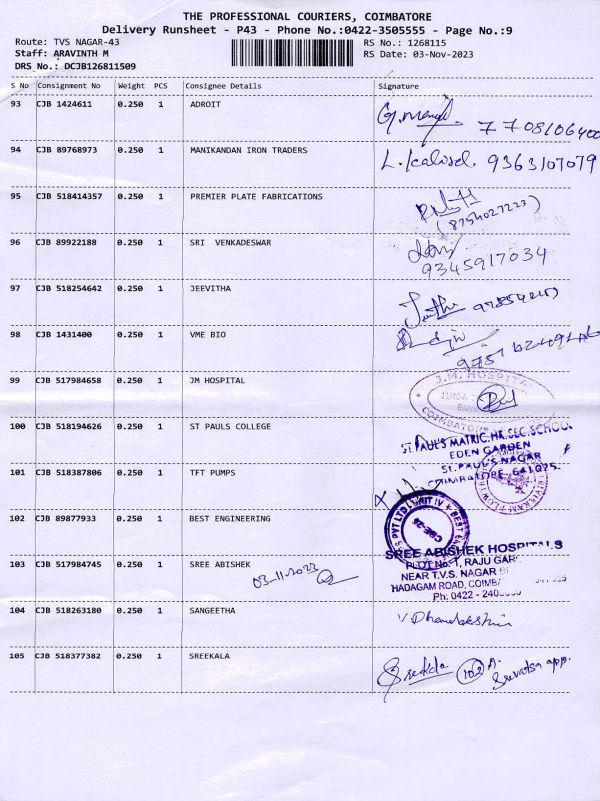 THE PROFESSIONAL COURIERS, COIMBATORE
Delivery Runsheet - P43 - Phone No.:0422-3505555 - Page No.:9
Route: TVS NAGAR-43 RS No.: 1268115
Staff: ARAVINTH M RS Date: 03-Nov-2023
DRS_No.: DCJB126811509
S No Consignment No Weight PCS Consignee Details Signature
93 CJB 1424611 0.250 1 ADROIT
7708106400
94 CJB 89768973 0.250 1 MANIKANDAN IRON TRADERS 9363107079
95 CJB 518414357 0.250 1 PREMIER PLATE FABRICATIONS
(8754027223)
96 CJB 89922188 0.250 1 SRI VENKADESWAR
9345917034
97 CJB 518254642 0.250 1 JEEVITHA
98 CJB 1431400 0.250 1 VME BIO
99 CJB 517984658 0.250 1 JM HOSPITAL
J.M. HOSPITAL
COIMBATORE
100 CJB 518194626 0.250 1 ST PAULS COLLEGE
ST. PAUL'S MATRIC.HR.SEC.SCHOOL
EDEN GARDEN
ST. PAUL'S NAGAR
COIMBATORE 641025
101 CJB 518387806 0.250 1 TFT PUMPS
102 CJB 89877933 0.250 1 BEST ENGINEERING
PVT LTD UNIT IV
CBE-26
103 CJB 517984745 0.250 1 SREE ABISHEK
03-11-2023
SREE ABISHEK HOSPITALS
PLOT No. 1, RAJU GAR
NEAR T.V.S. NAGAR
HADAGAM ROAD, COIMBA
Ph: 0422 - 240
104 CJB 518263180 0.250 1 SANGEETHA
V Dhanalakshmi
105 CJB 518377382 0.250 1 SREEKALA
Sreekala 102 A.
Srivatsa app.